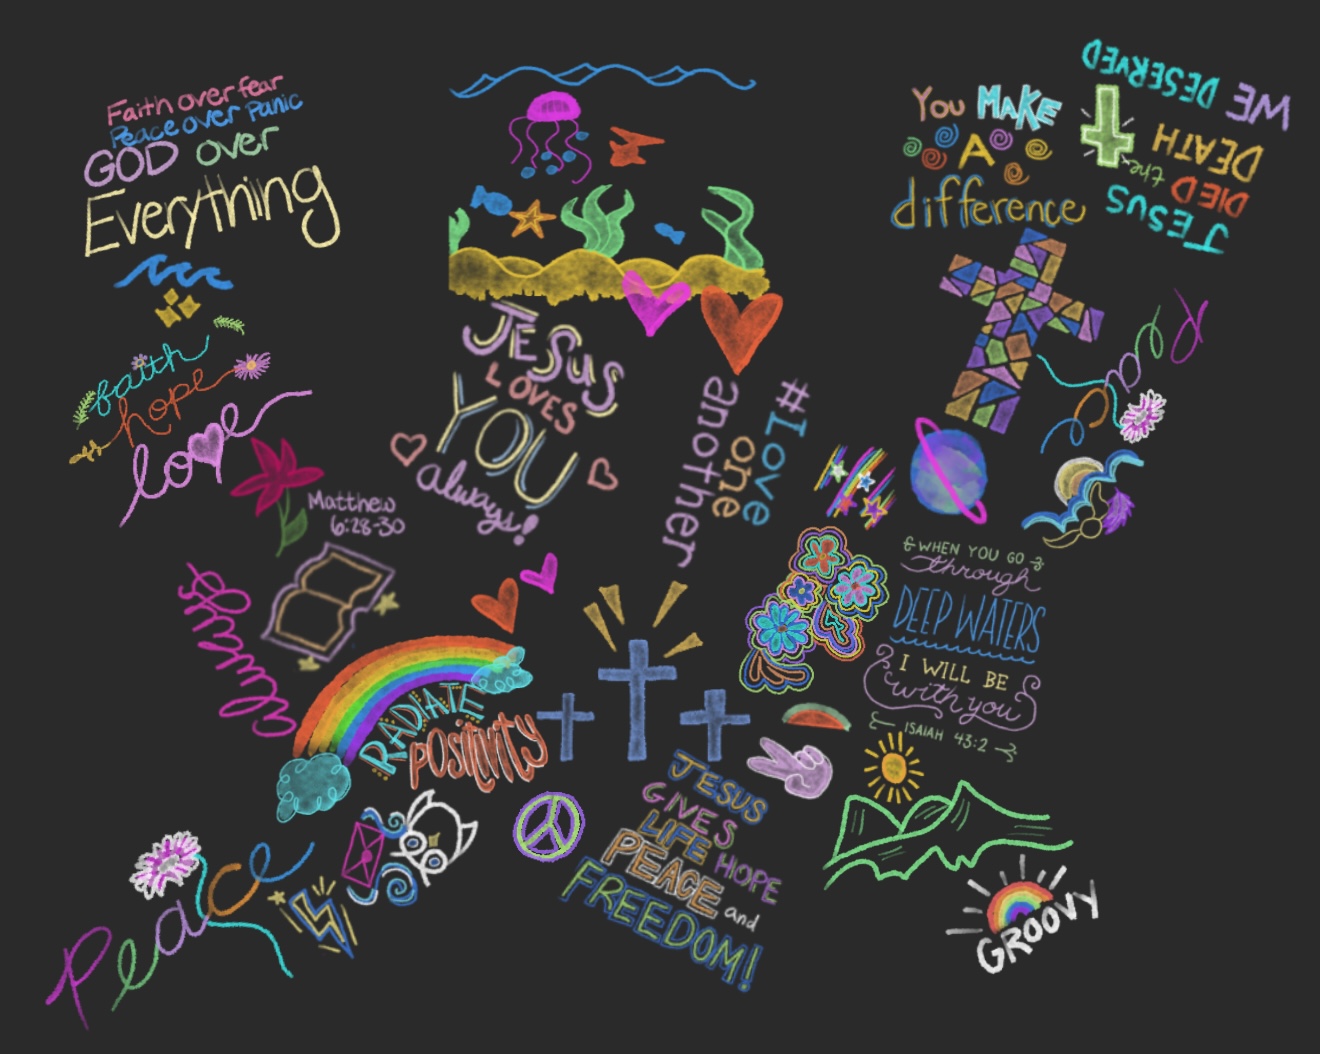 Faith over fear
Peace over Panic
GOD over
Everything
faith
hope
love
Matthew
6:28-30
JESUS
LOVES
YOU
always!
#Love
one
another
YOU MAKE
A
difference
JESUS
DIED the
DEATH
WE DESERVED
Peace
WHEN YOU GO
through
DEEP WATERS
I WILL BE
with you
ISAIAH 43:2
RADIATE
POSITIVITY
Peace
JESUS
GIVES
LIFE HOPE
PEACE and
FREEDOM!
GROOVY